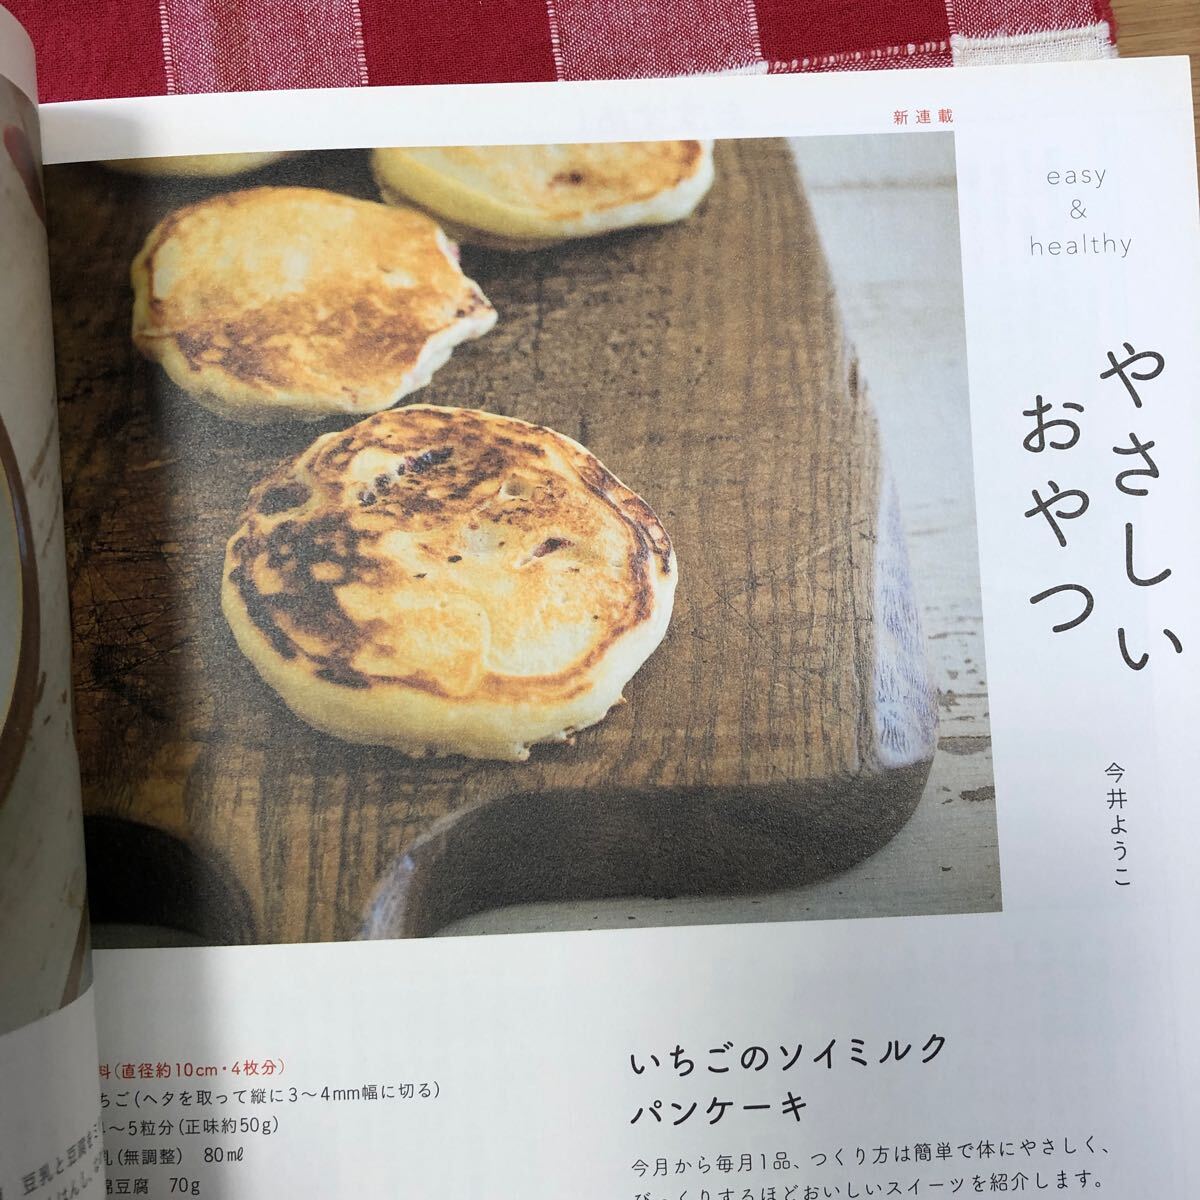 新連載
easy
&
healthy
やさしい
おやつ
今井ようこ
いちごのソイミルク
パンケーキ
今月から毎月1品、つくり方は簡単で体にやさしく、
びっくりするほどおいしいスイーツを紹介します。
料(直径約10cm・4枚分)
ちご(ヘタを取って縦に3〜4mm幅に切る)
〜5粒分(正味約50g)
乳(無調整) 80ml
綿豆腐 70g
豆乳と豆腐を